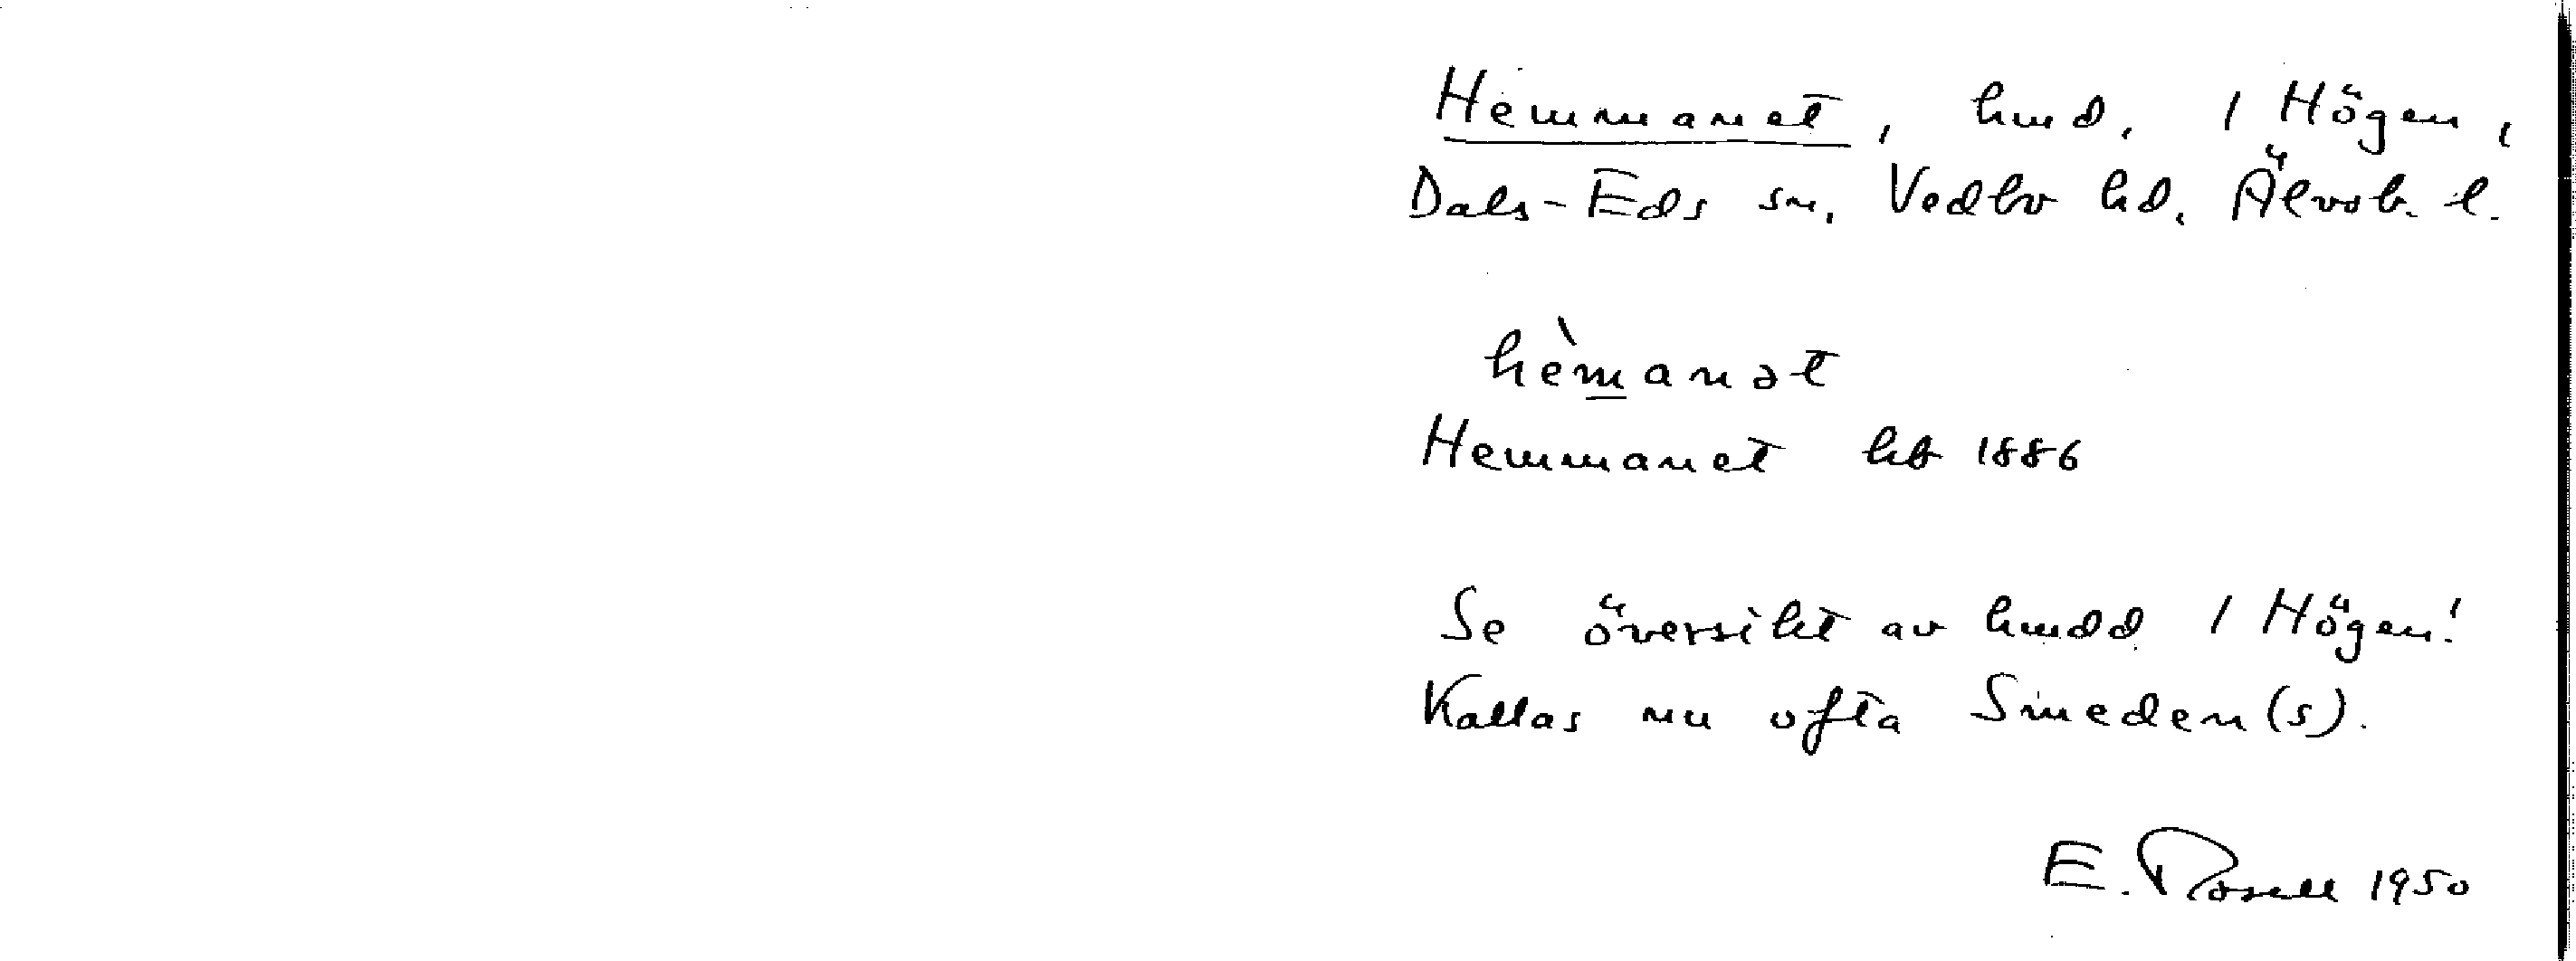 Hemmanet, hmd, 1 Högen,
Dals-Eds sn, Vedbo hd, Älvsb. l.
hèmanət
Hemmanet hb 1886
Se översikt av hmdd 1 Högen!
Kallas nu ofta Smeden(s).
E. Rosell 1950